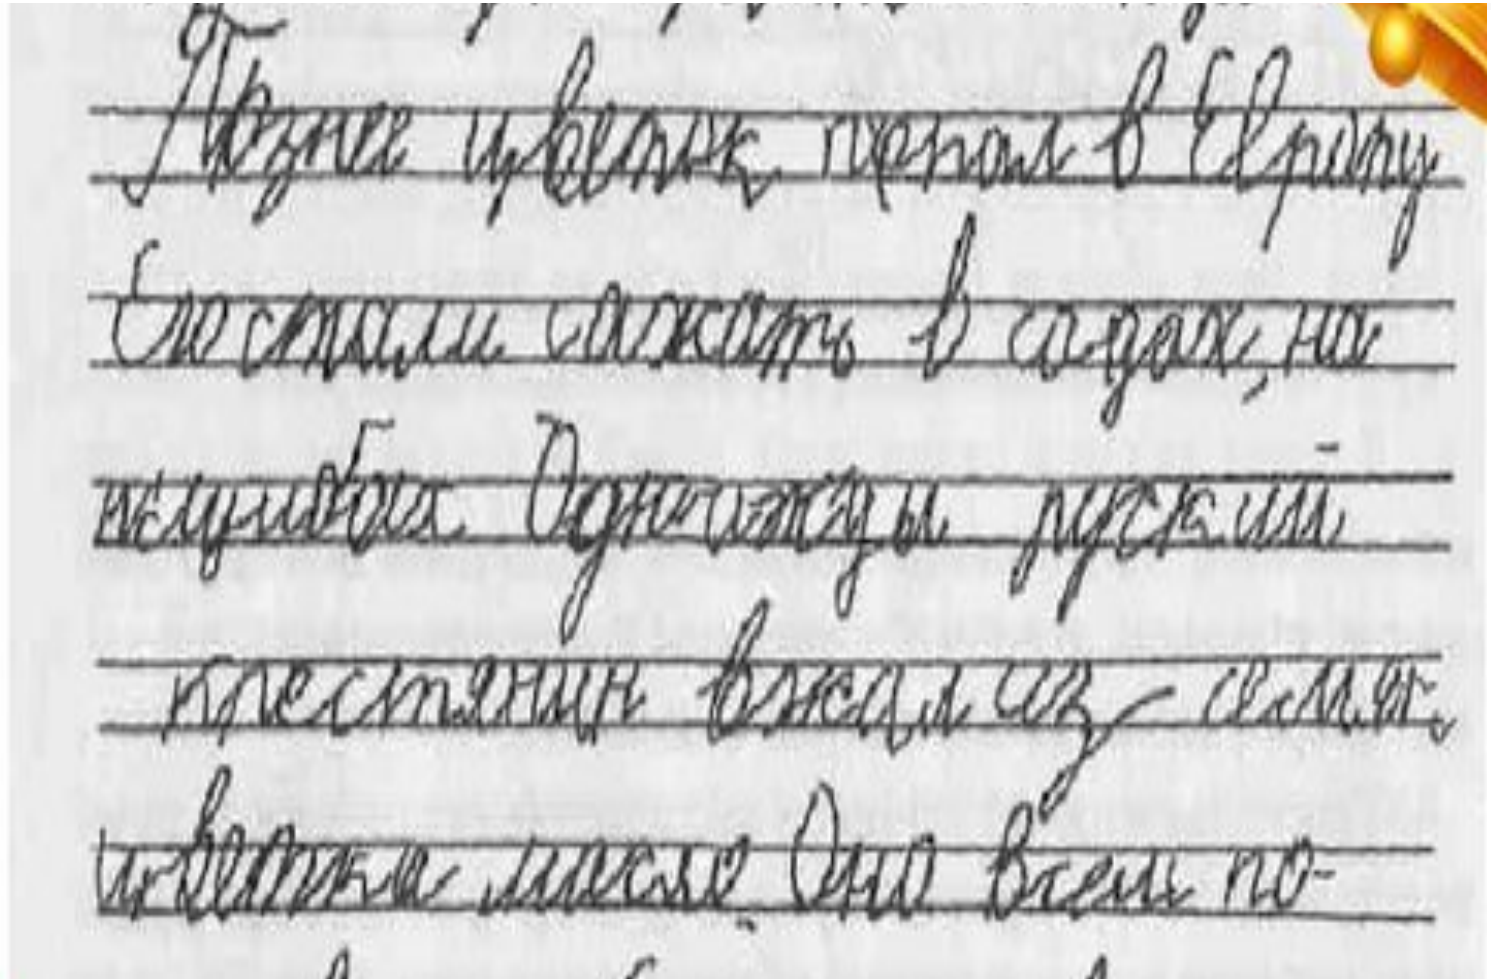 Познее цветок попал в Европу
Его стали сажать в садах, на
клумбах Одножды руский
крестянин вжал из семян
цветка масло Оно всем по-